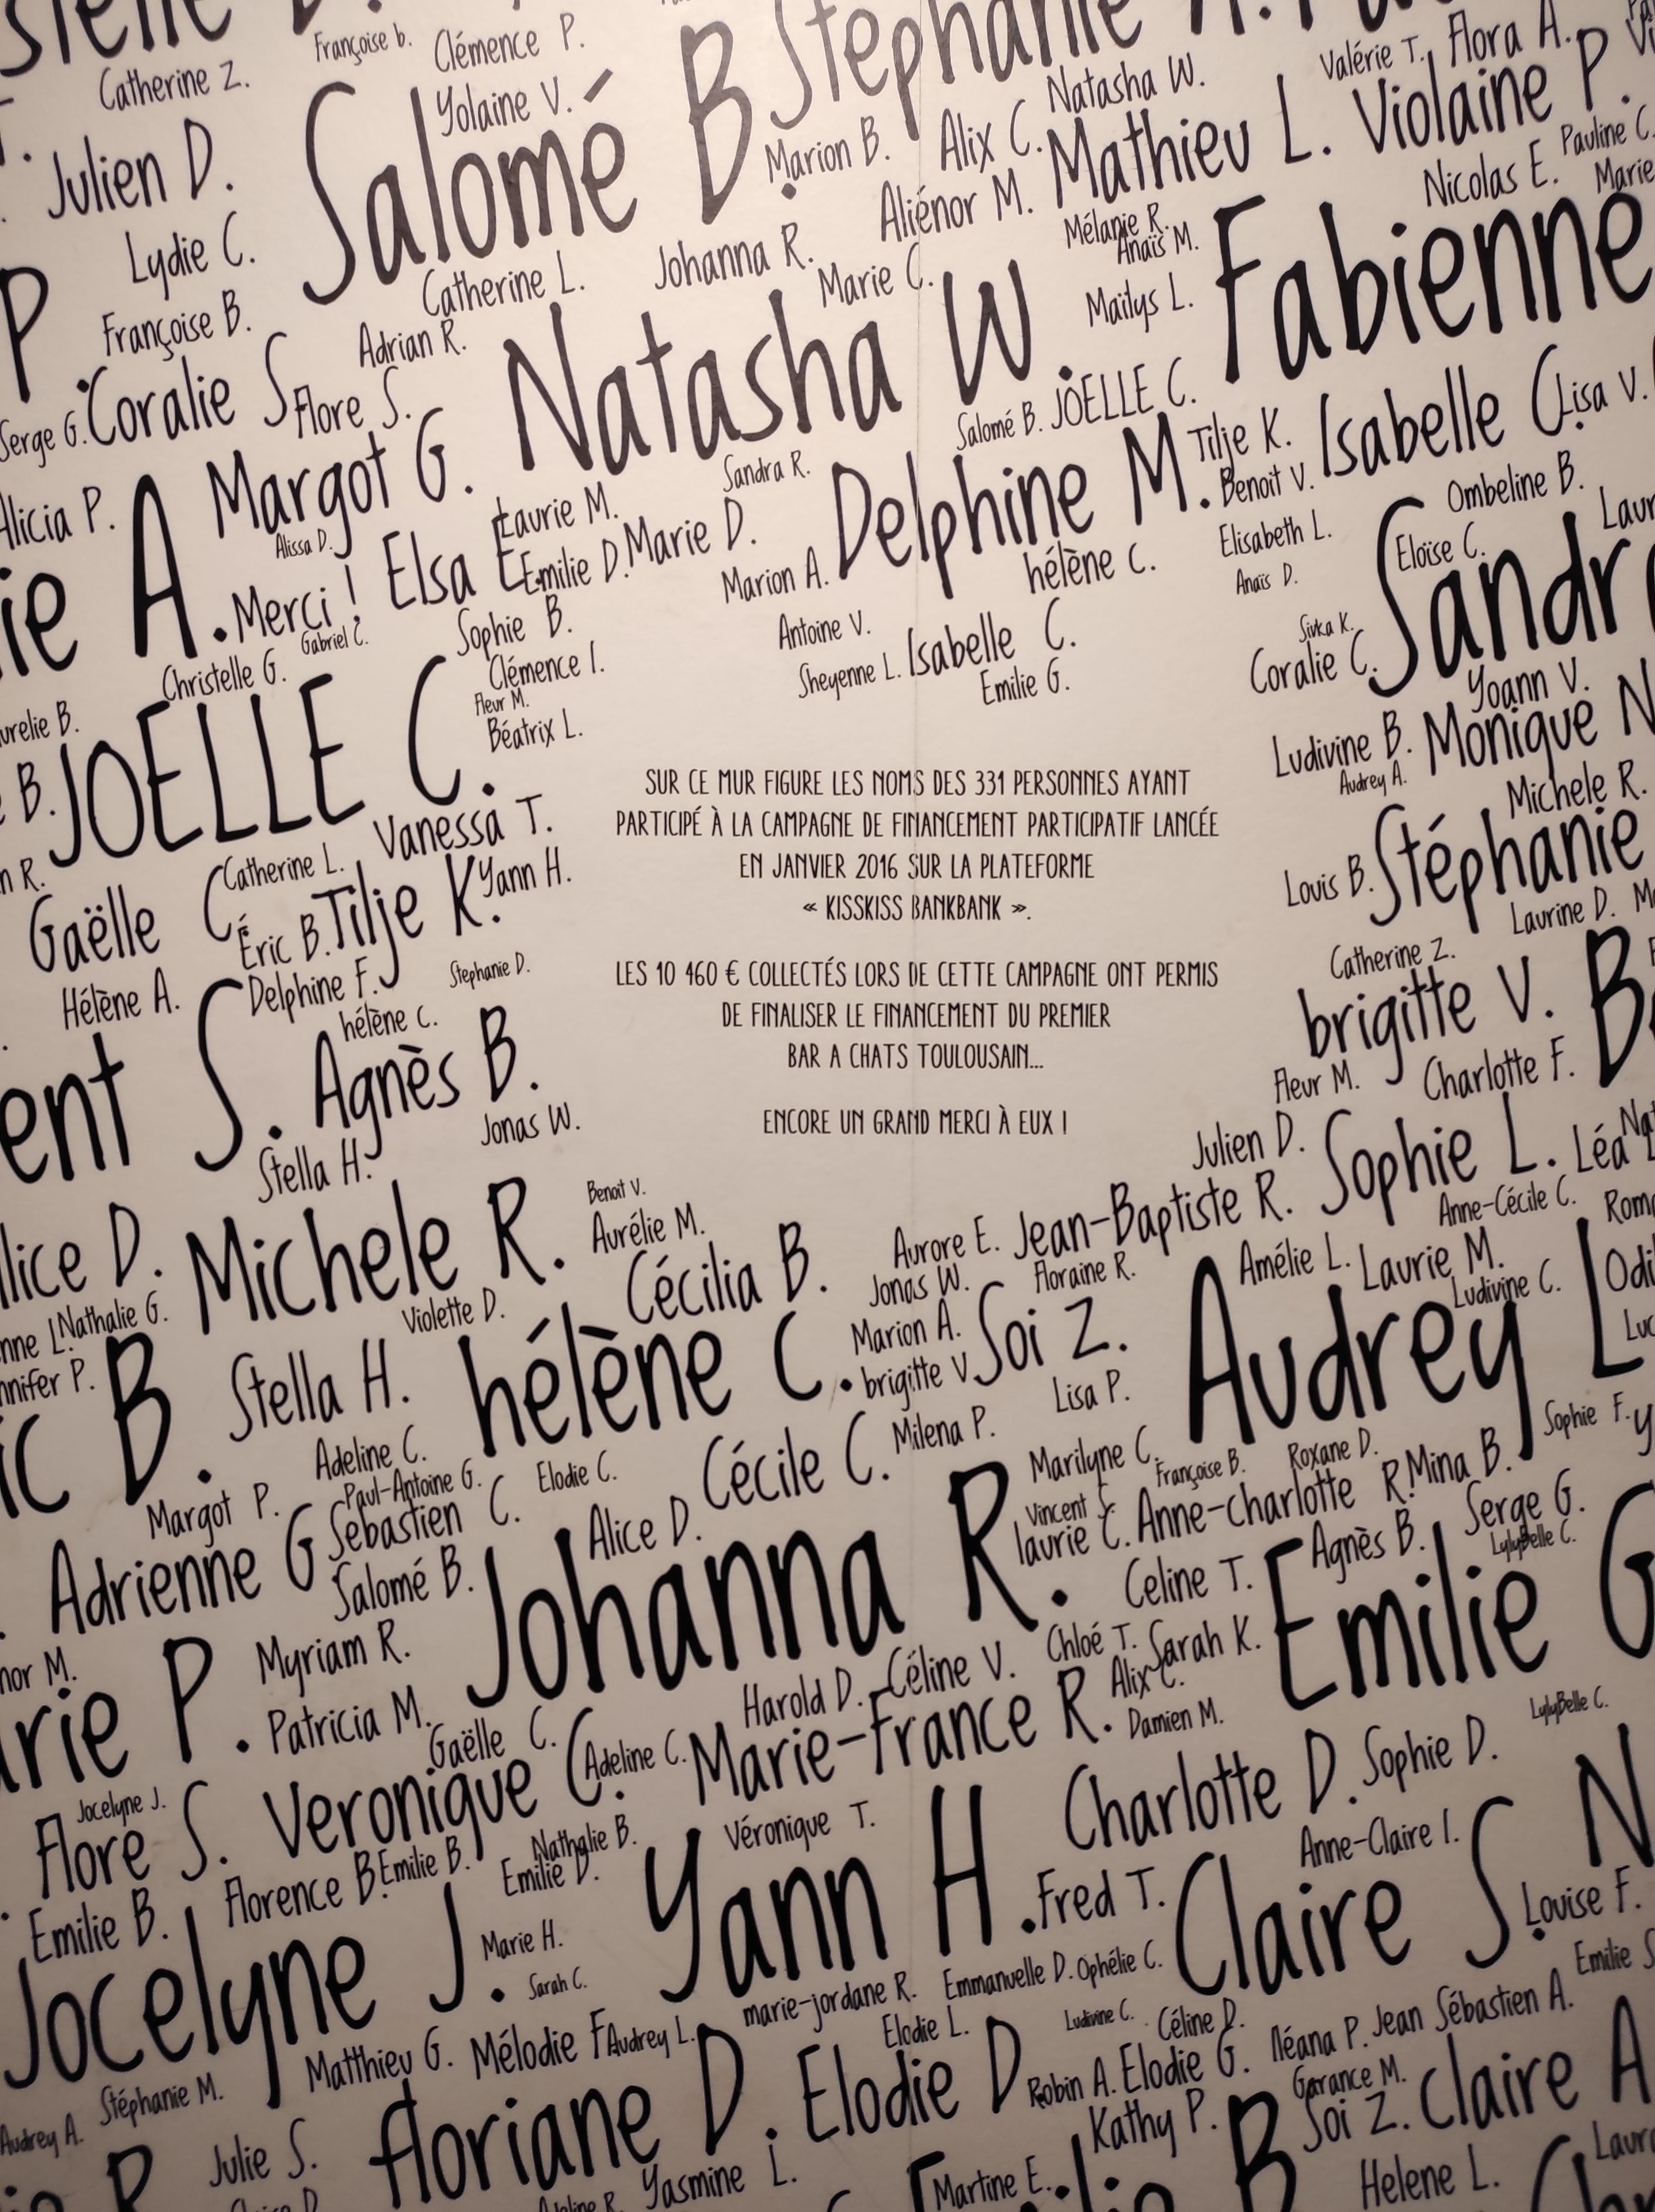 Françoise b.
Clémence P.
Stephanie A.
Catherine Z.
Yolaine V.
Valérie T. Flora A.
Julien D.
Salomé B.
Marion B.
Alix C.
Natasha W.
Mathieu L. Violaine P.
Pauline C.
Lydie C.
Catherine L.
Johanna R.
Aliénor M.
Marie C.
Mélanie R.
Anaïs M.
Nicolas E.
Marie
P.
Françoise B.
Adrian R.
Natasha W.
Maïlys L.
Fabienne
Serge G.
Coralie S.
Flore S.
Salomé B.
JOELLE C.
Lisa V.
Alicia P.
A.
Margot G.
Sandra R.
Delphine M.
Tilje K.
Benoit V.
Isabelle C.
Ombeline B.
Alissa D.
Laurie M.
Elsa E.
Emilie D.
Marie D.
Marion A.
hélène c.
Elisabeth L.
Anaïs D.
Eloïse C.
Merci !
Gabriel C.
Sophie B.
Antoine V.
Sivka K.
Christelle G.
Clémence I.
Sheyenne L.
Isabelle C.
Emilie G.
Coralie C.
Yoann V.
JOELLE C.
Fleur M.
Béatrix L.
Ludivine B.
Audrey A.
Monique N
Michele R.
SUR CE MUR FIGURE LES NOMS DES 331 PERSONNES AYANT
PARTICIPÉ À LA CAMPAGNE DE FINANCEMENT PARTICIPATIF LANCÉE
EN JANVIER 2016 SUR LA PLATEFORME
« KISSKISS BANKBANK ».
LES 10 460 € COLLECTÉS LORS DE CETTE CAMPAGNE ONT PERMIS
DE FINALISER LE FINANCEMENT DU PREMIER
BAR A CHATS TOULOUSAIN...
ENCORE UN GRAND MERCI À EUX !
Vanessa T.
Catherine L.
Louis B.
Stéphanie
Gaëlle C.
Éric B.
Tilje K.
Yann H.
Laurine D.
Hélène A.
Delphine F.
Stephanie D.
Catherine Z.
hélène c.
brigitte V.
S.
Agnès B.
Fleur M.
Charlotte F.
Jonas W.
Stella H.
Julien D.
Sophie L.
Léa
Benoit V.
Aurélie M.
Aurore E.
Jean-Baptiste R.
Anne-Cécile C.
D.
Michele R.
Cécilia B.
Jonas W.
Floraine R.
Amélie L.
Laurie M.
Ludivine C.
Nathalie G.
Violette D.
Marion A.
Soi Z.
Audrey L
B.
Stella H.
hélène C.
brigitte V.
Lisa P.
Adeline C.
Cécile C.
Milena P.
Marilyne C.
Françoise B.
Roxane D.
Sophie F.
Margot P.
Paul-Antoine G.
Elodie C.
Vincent S.
Anne-charlotte R.
Mina B.
Adrienne G.
Sebastien C.
Alice D.
laurie C.
Agnès B.
Serge G.
LylyBelle C.
Salomé B.
Johanna R.
Celine T.
Emilie G
Myriam R.
Chloé T.
Sarah K.
P.
Patricia M.
Harold D.
Céline V.
Alix C.
Gaëlle C.
Adeline C.
Marie-France R.
Damien M.
LylyBelle C.
Jocelyne J.
Flore S.
Veronique C.
Charlotte D.
Sophie D.
Florence B.
Emilie B.
Nathalie B.
Véronique T.
Anne-Claire I.
Emilie B.
Emilie D.
Yann H.
Fred T.
Claire S.
N
Louise F.
Jocelyne J.
Marie H.
Sarah C.
marie-jordane R.
Emmanuelle D.
Ophélie C.
Emilie S
Matthieu G.
Mélodie F.
Audrey L.
Elodie L.
Ludivine C.
Céline D.
Iléana P.
Jean Sébastien A.
Stéphanie M.
Audrey A.
floriane D.
Elodie D
Robin A.
Elodie G.
Garance M.
Kathy P.
Soi Z.
Claire A
Julie S.
Yasmine L.
Martine E.
Helene L.